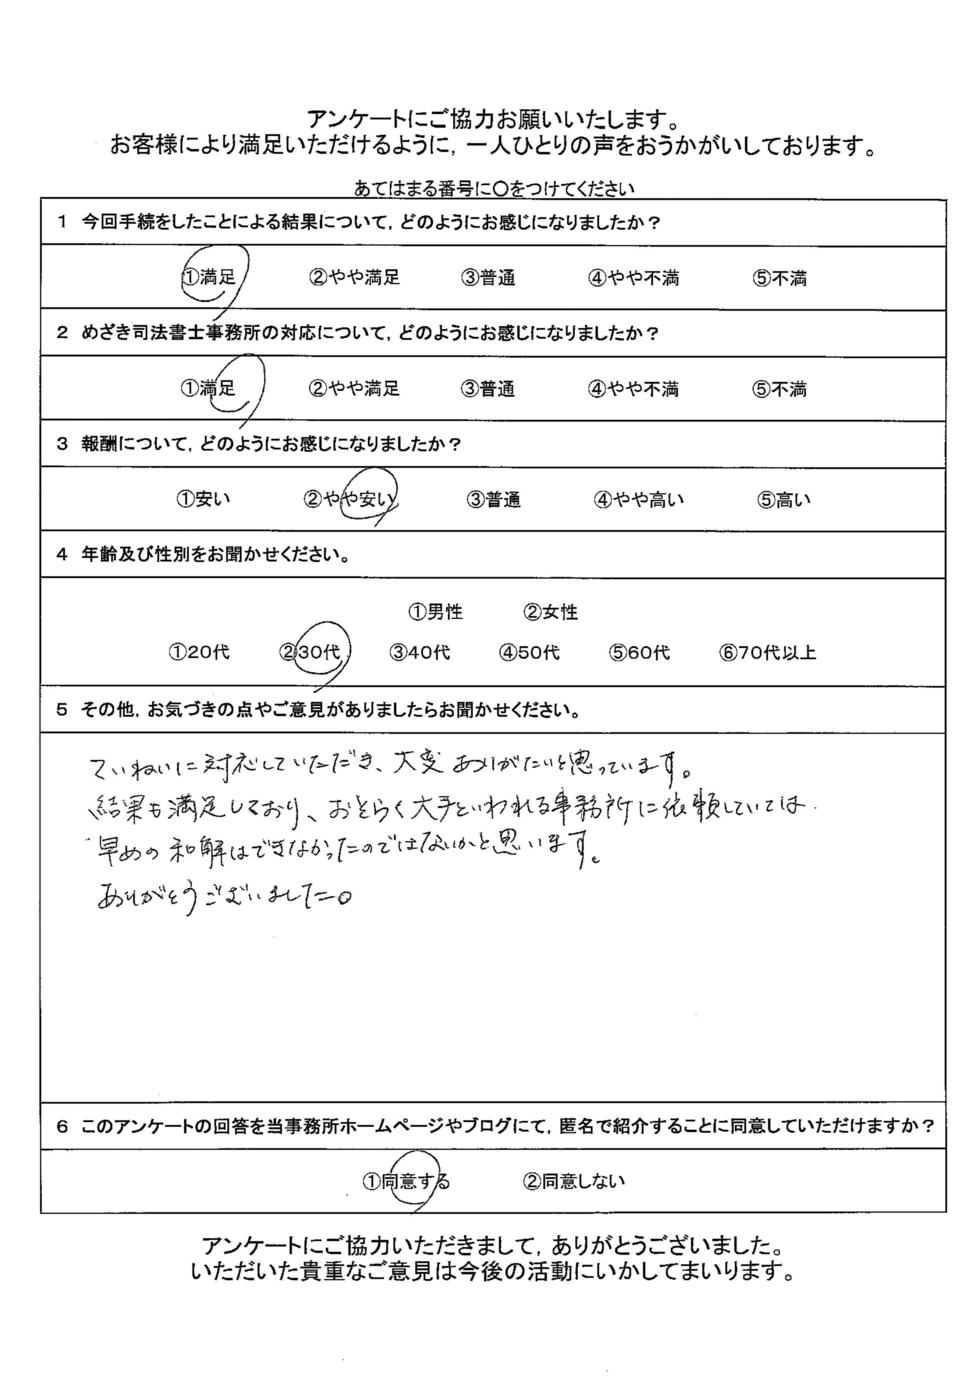 アンケートにご協力お願いいたします。
お客様により満足いただけるように，一人ひとりの声をおうかがいしております。
あてはまる番号に○をつけてください
1 今回手続をしたことによる結果について，どのようにお感じになりましたか？
①満足 ②やや満足 ③普通 ④やや不満 ⑤不満
2 めざき司法書士事務所の対応について，どのようにお感じになりましたか？
①満足 ②やや満足 ③普通 ④やや不満 ⑤不満
3 報酬について，どのようにお感じになりましたか？
①安い ②やや安い ③普通 ④やや高い ⑤高い
4 年齢及び性別をお聞かせください。
①男性 ②女性
①20代 ②30代 ③40代 ④50代 ⑤60代 ⑥70代以上
5 その他，お気づきの点やご意見がありましたらお聞かせください。
ていねいに対応していただき、大変ありがたいと思っています。
結果も満足しており、おそらく大手といわれる事務所に依頼していては
早めの和解はできなかったのではないかと思います。
ありがとうございました。
6 このアンケートの回答を当事務所ホームページやブログにて，匿名で紹介することに同意していただけますか？
①同意する ②同意しない
アンケートにご協力いただきまして，ありがとうございました。
いただいた貴重なご意見は今後の活動にいかしてまいります。